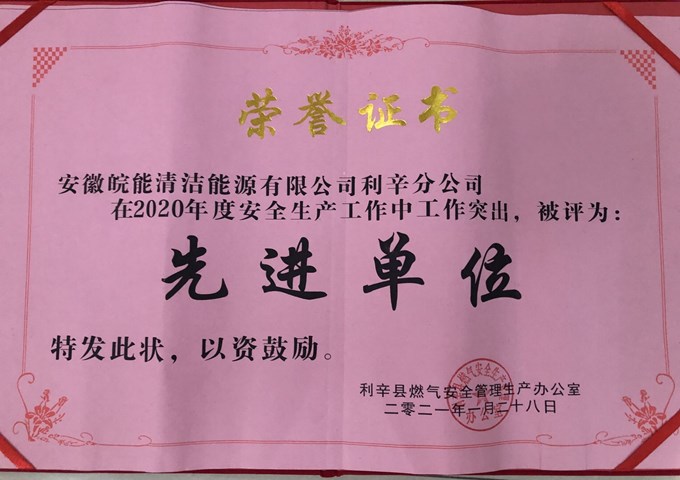 荣誉证书
安徽皖能清洁能源有限公司利辛分公司
在2020年度安全生产工作中工作突出，被评为：
先进单位
特发此状，以资鼓励。
利辛县燃气安全管理生产办公室
二零二一年一月二十八日